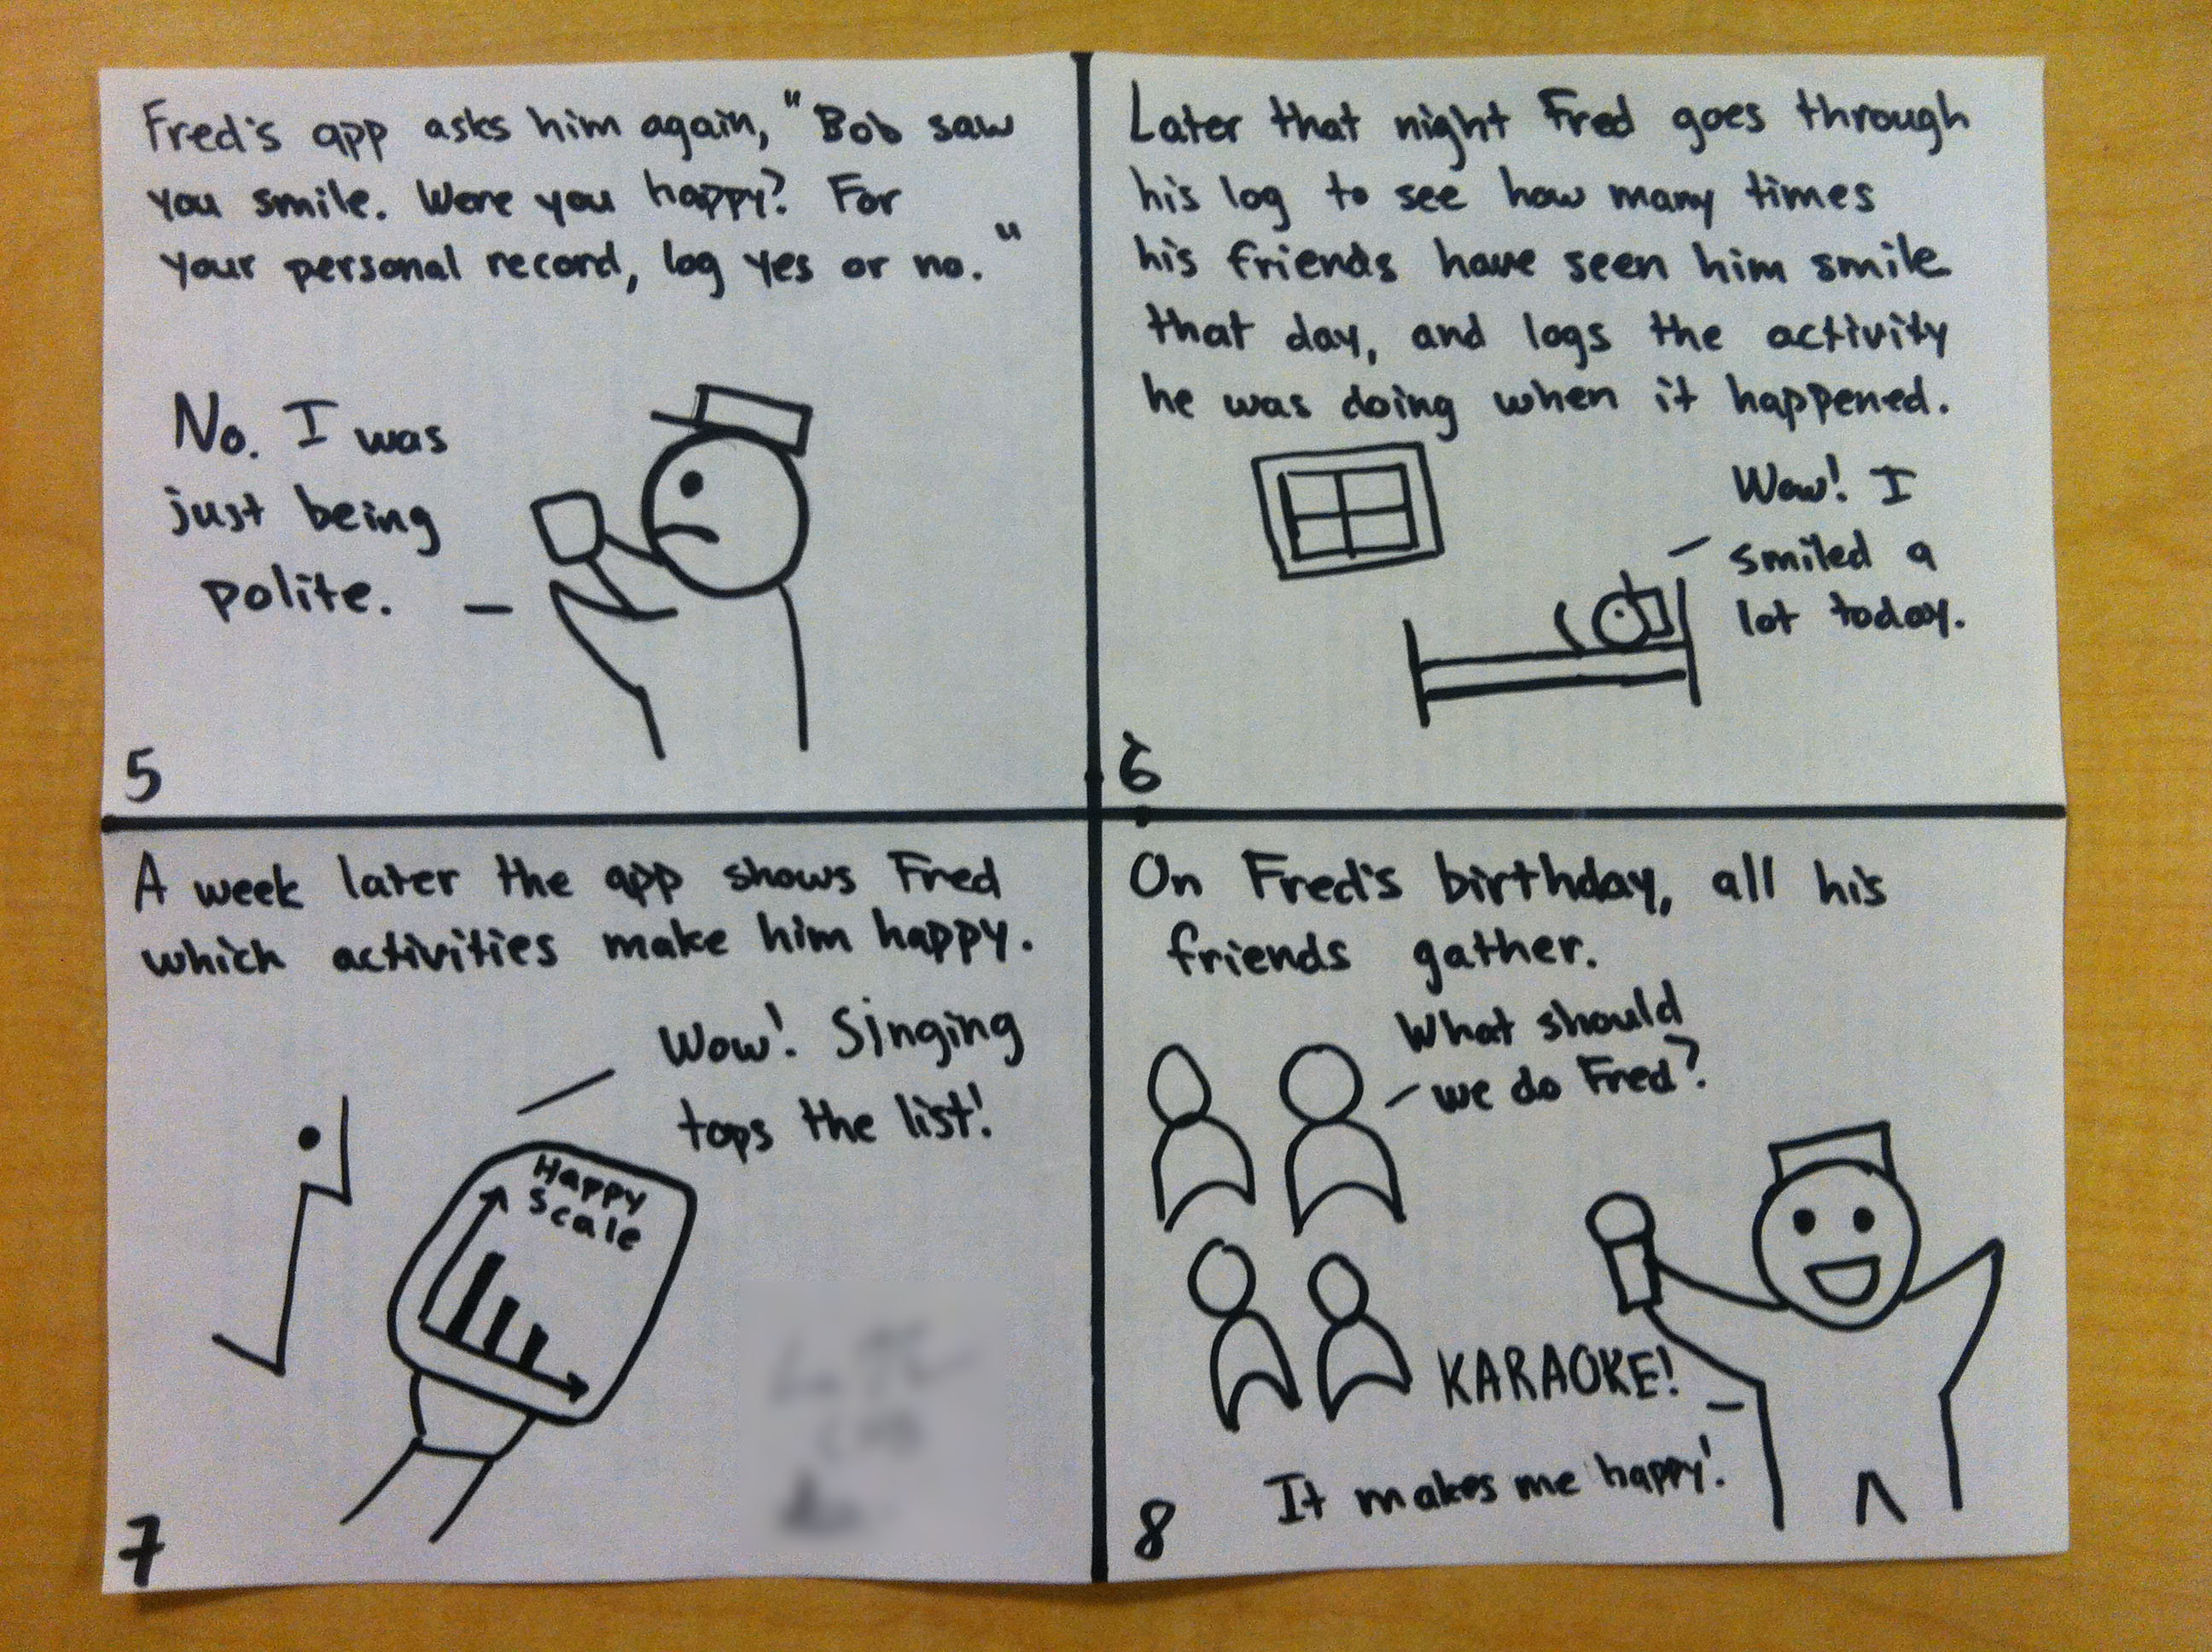 Fred's app asks him again, "Bob saw
you smile. Were you happy? For
your personal record, log yes or no."
No. I was
just being
polite.
5
Later that night Fred goes through
his log to see how many times
his friends have seen him smile
that day, and logs the activity
he was doing when it happened.
Wow! I
smiled a
lot today.
6
A week later the app shows Fred
which activities make him happy.
Wow! Singing
tops the list!
Happy
Scale
7
On Fred's birthday, all his
friends gather.
What should
we do Fred?
KARAOKE!
It makes me happy!
8